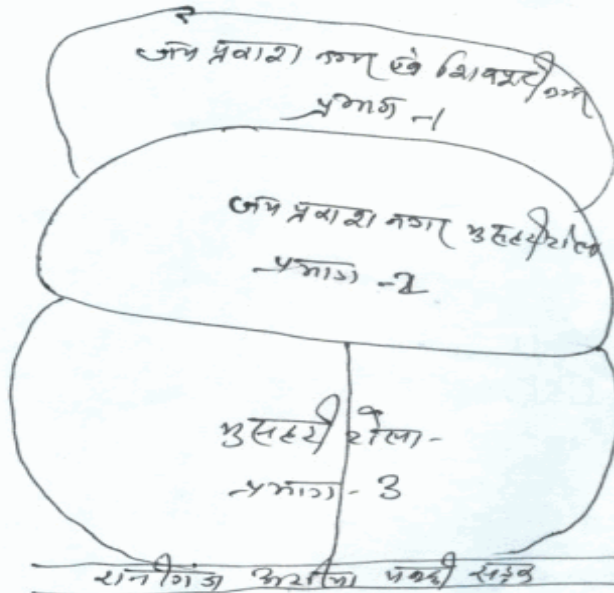 जय प्रकाश नगर एवं शिवपुरी नगर
प्रभाग -1
जय प्रकाश नगर मुसहरी टोला
प्रभाग -2
मुसहरी टोला -
प्रभाग - 3
रानीगंज अररिया पक्की सड़क